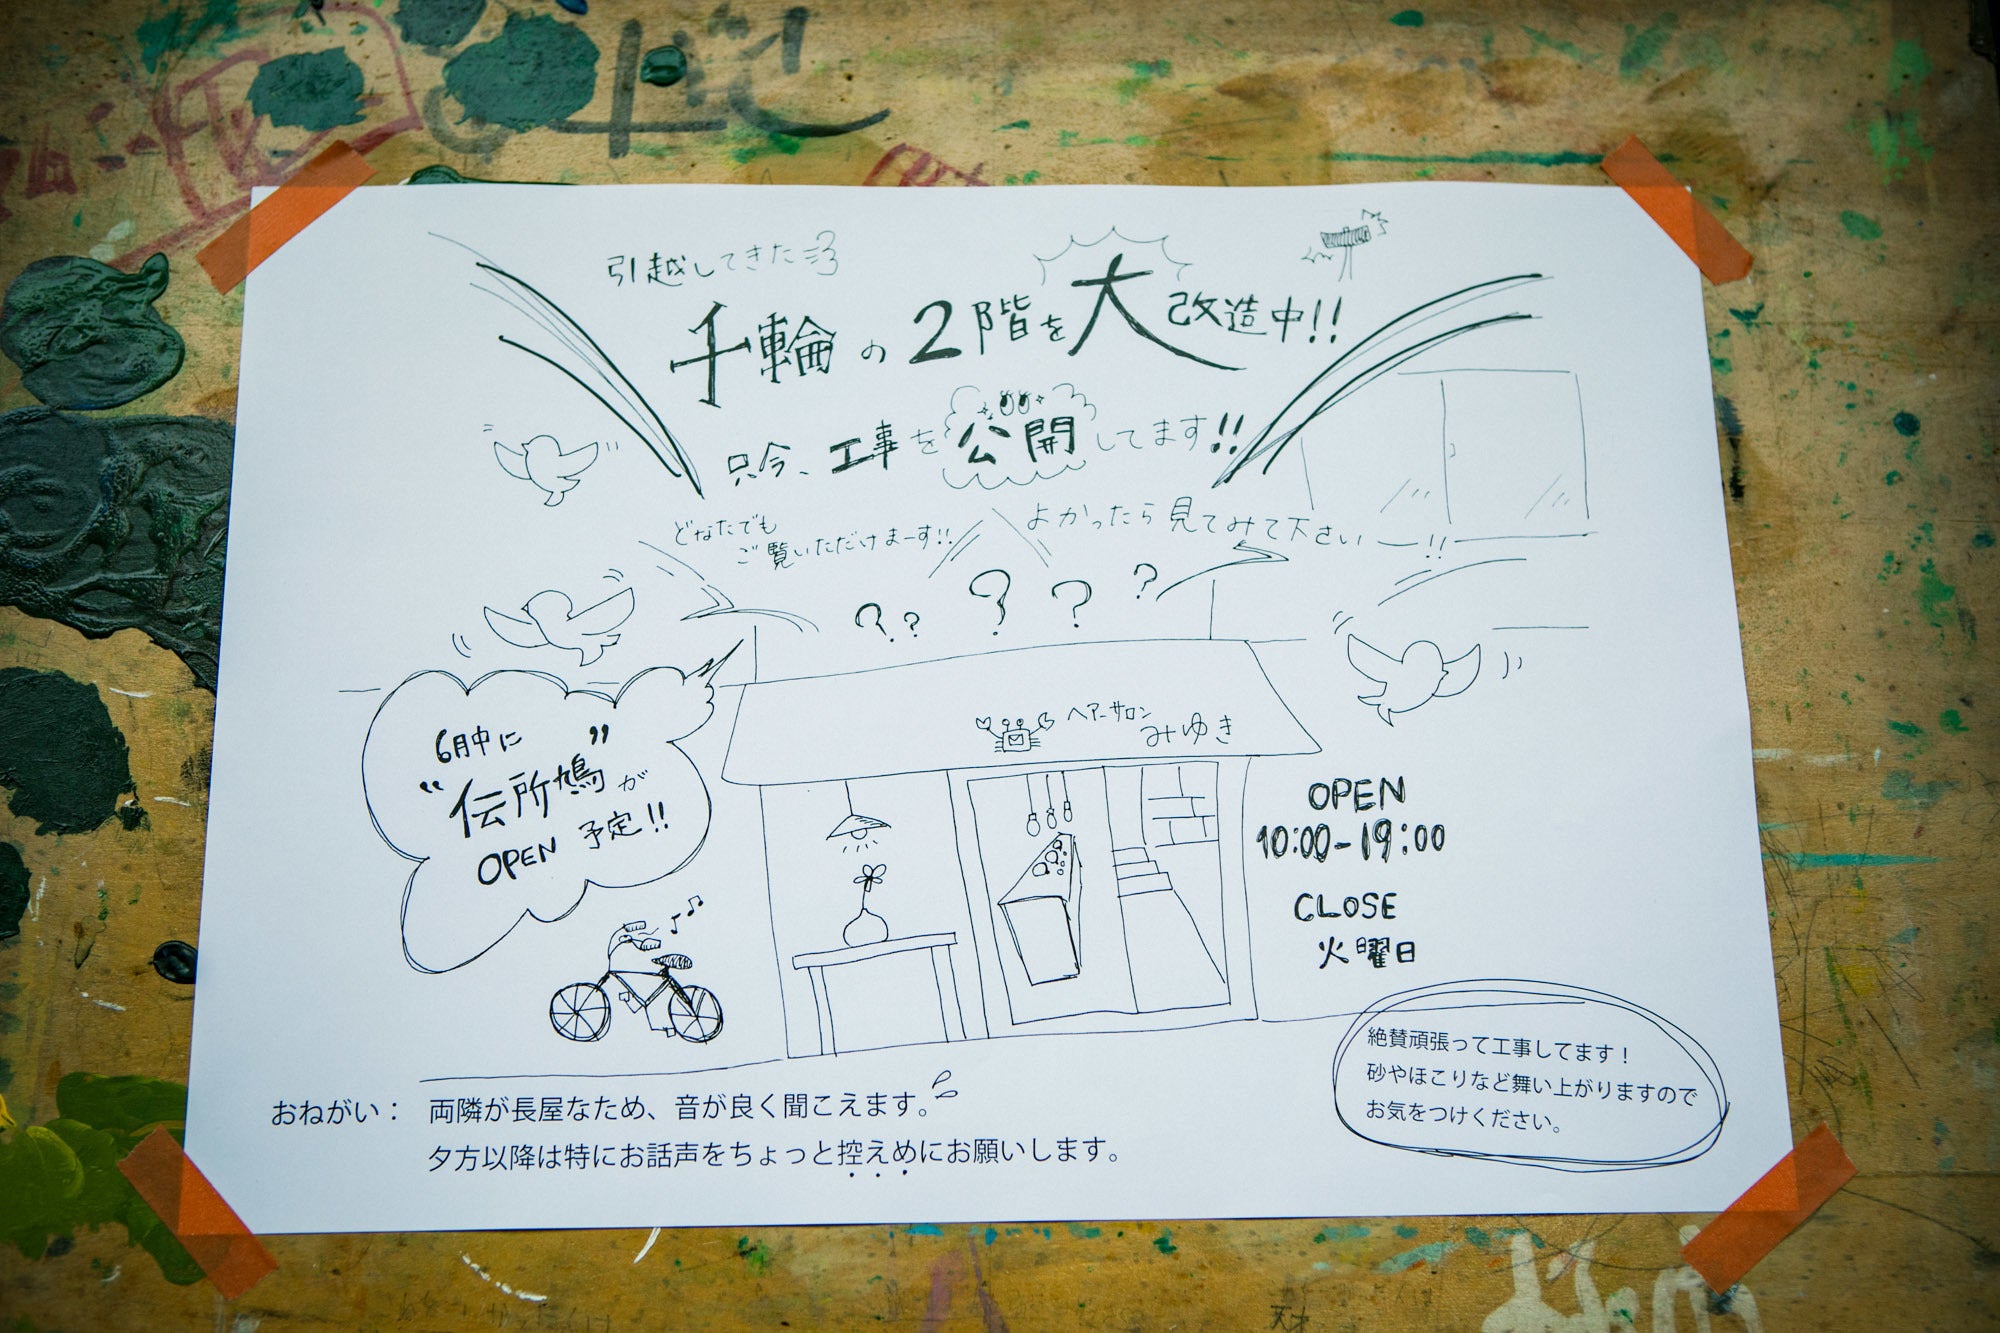 引越してきた
千輪の2階を大改造中!!
只今、工事を公開してます!!
どなたでも
ご覧いただけまーす!!
よかったら見てみて下さいー!!
?? ? ? ?
6月中に
“伝所鳩”が
OPEN 予定!!
ヘアーサロン
みゆき
OPEN
10:00-19:00
CLOSE
火曜日
絶賛頑張って工事してます！
砂やほこりなど舞い上がりますので
お気をつけください。
おねがい： 両隣が長屋なため、音が良く聞こえます。
夕方以降は特にお話声をちょっと控えめにお願いします。